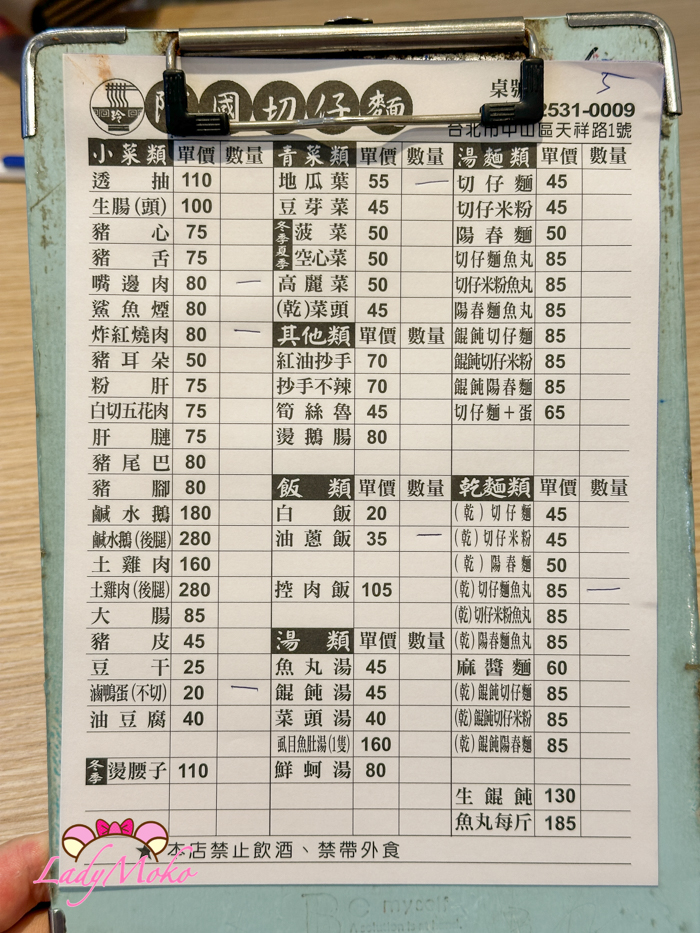 國切仔麵
桌號 5
2531-0009
台北市中山區天祥路1號
小菜類 單價 數量
透抽 110
生腸(頭) 100
豬心 75
豬舌 75
嘴邊肉 80 一
鯊魚煙 80
炸紅燒肉 80 一
豬耳朵 50
粉肝 75
白切五花肉 75
肝膥 75
豬尾巴 80
豬腳 80
鹹水鵝 180
鹹水鵝(後腿) 280
土雞肉 160
土雞肉(後腿) 280
大腸 85
豬皮 45
豆干 25
滷鴨蛋(不切) 20 一
油豆腐 40
冬季 燙腰子 110
青菜類 單價 數量
地瓜葉 55 一
豆芽菜 45
冬季 菠菜 50
夏季 空心菜 50
高麗菜 50
(乾)菜頭 45
其他類 單價 數量
紅油抄手 70
抄手不辣 70
筍絲魯 45
燙鵝腸 80
飯類 單價 數量
白飯 20
油蔥飯 35 一
控肉飯 105
湯類 單價 數量
魚丸湯 45
餛飩湯 45
菜頭湯 40
虱目魚肚湯(1隻) 160
鮮蚵湯 80
湯麵類 單價 數量
切仔麵 45
切仔米粉 45
陽春麵 50
切仔麵魚丸 85
切仔米粉魚丸 85
陽春麵魚丸 85
餛飩切仔麵 85
餛飩切仔米粉 85
餛飩陽春麵 85
切仔麵+蛋 65
乾麵類 單價 數量
(乾)切仔麵 45
(乾)切仔米粉 45
(乾)陽春麵 50
(乾)切仔麵魚丸 85 一
(乾)切仔米粉魚丸 85
(乾)陽春麵魚丸 85
麻醬麵 60
(乾)餛飩切仔麵 85
(乾)餛飩切仔米粉 85
(乾)餛飩陽春麵 85
生餛飩 130
魚丸每斤 185
★本店禁止飲酒、禁帶外食
LadyMoko